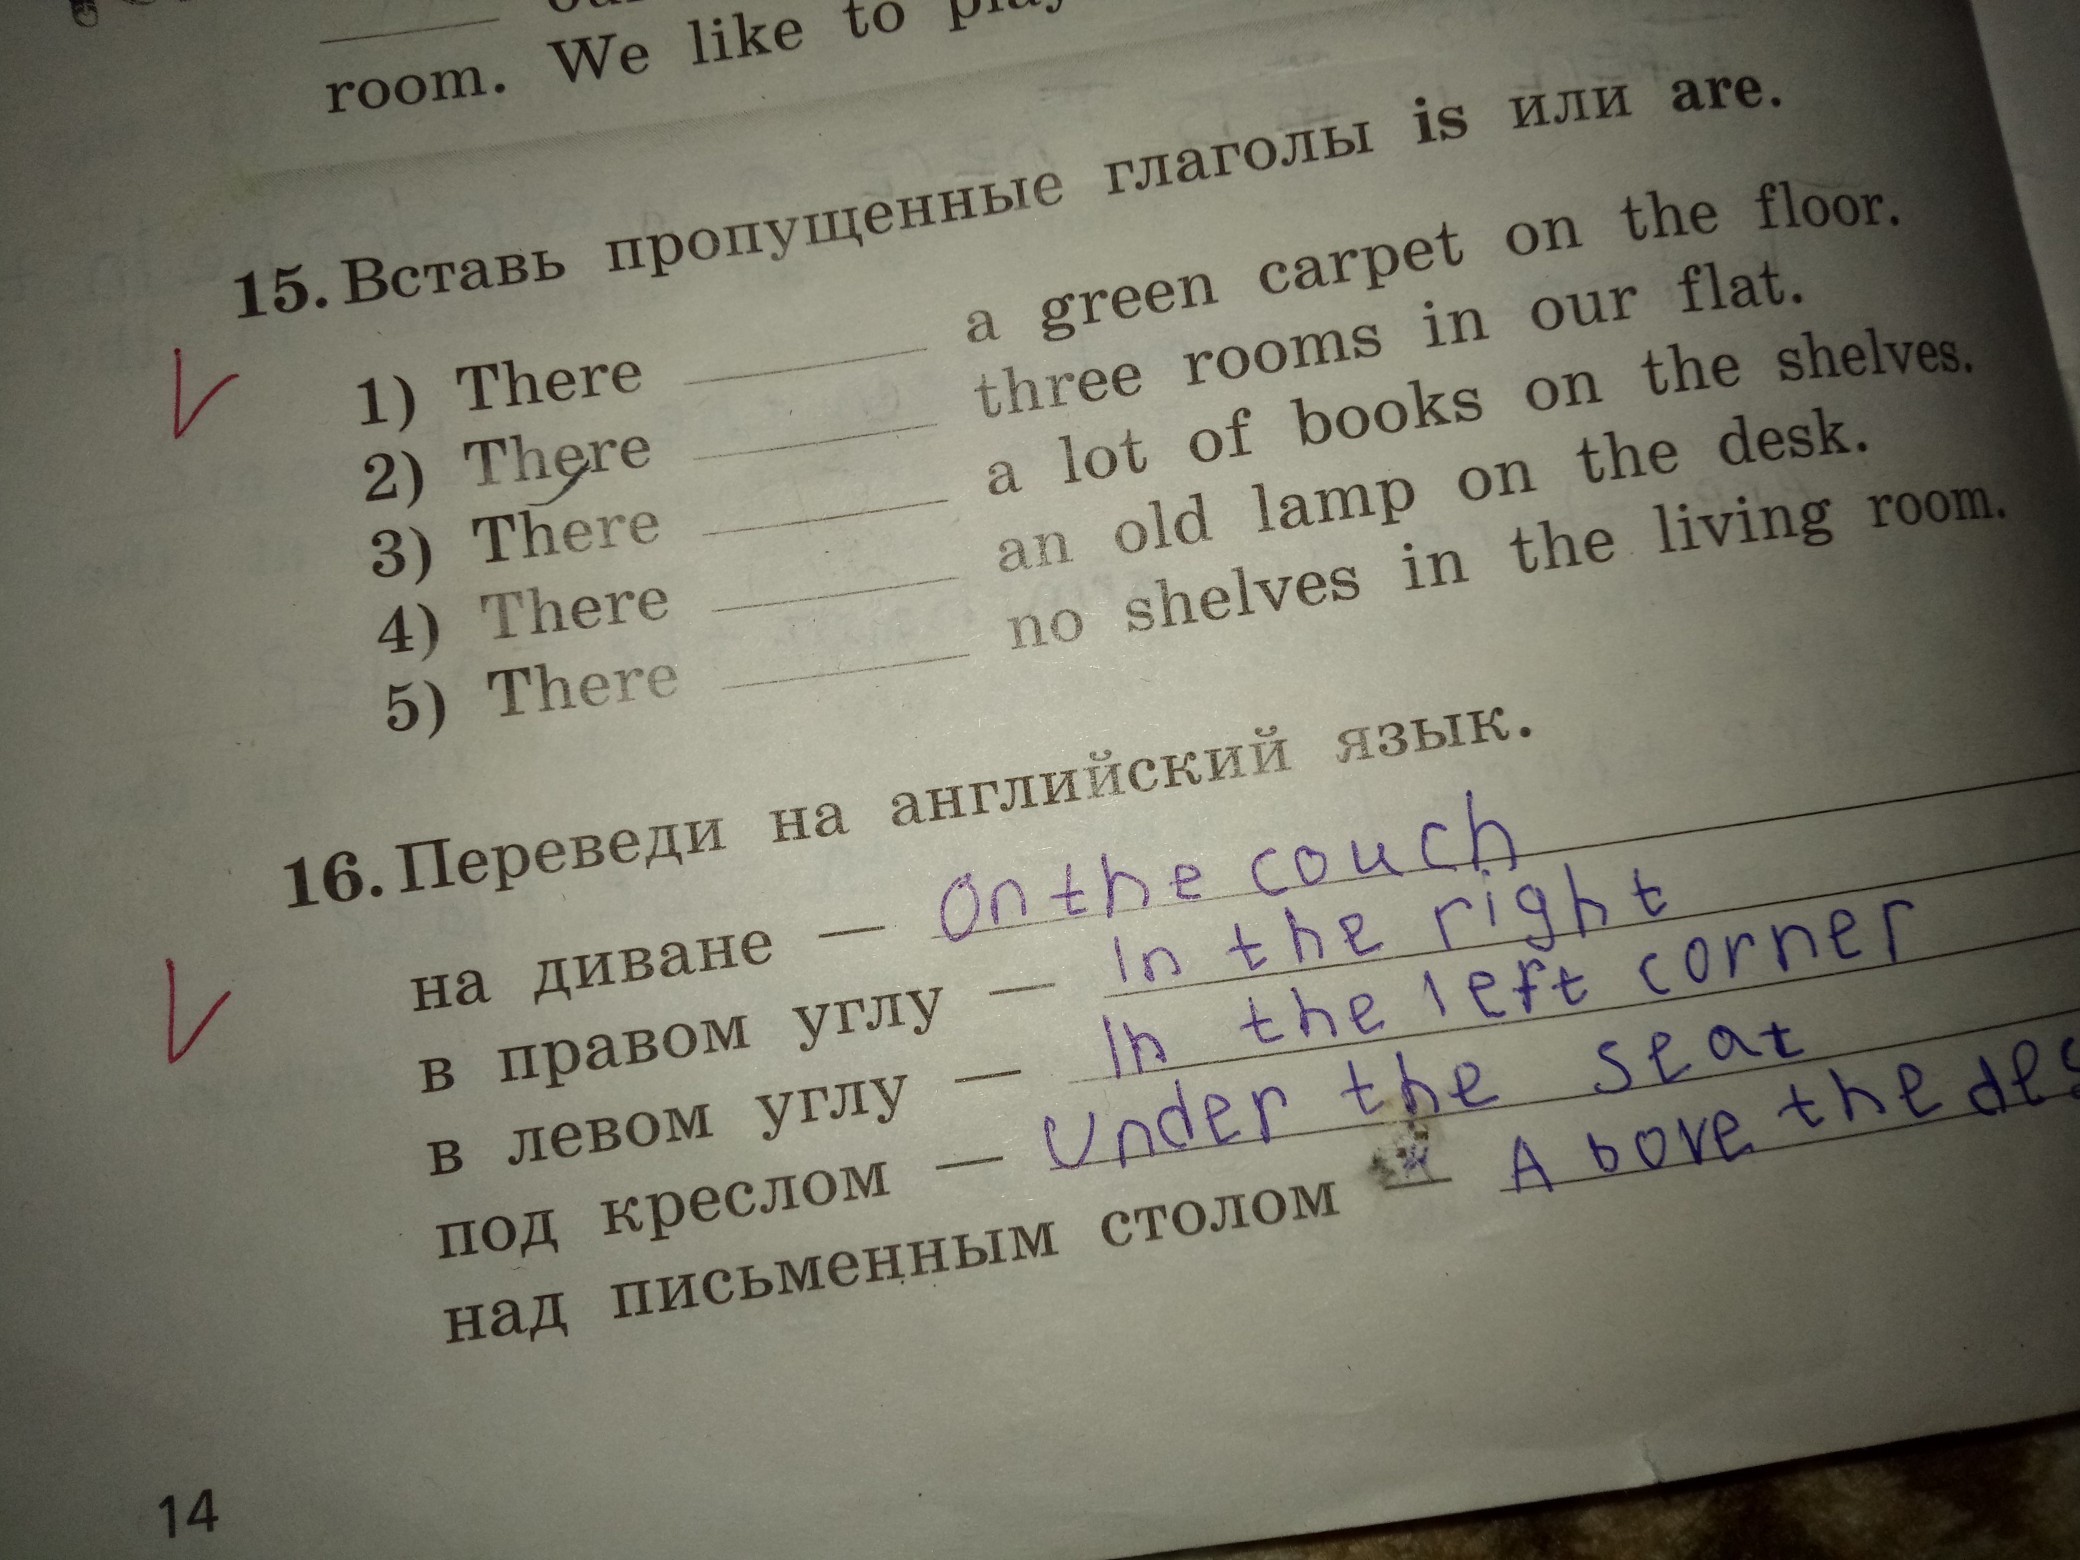 room. We like to play
15. Вставь пропущенные глаголы is или are.
1) There ______ a green carpet on the floor.
2) There ______ three rooms in our flat.
3) There ______ a lot of books on the shelves.
4) There ______ an old lamp on the desk.
5) There ______ no shelves in the living room.
16. Переведи на английский язык.
на диване — On the couch
в правом углу — In the right
в левом углу — In the left corner
под креслом — Under the seat
над письменным столом — Above the des
14